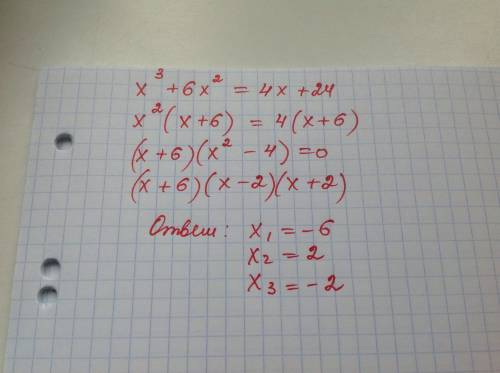 x³ + 6x² = 4x + 24
x²(x+6) = 4(x+6)
(x+6)(x² - 4) = 0
(x+6)(x-2)(x+2)
Ответ: x₁ = -6
x₂ = 2
x₃ = -2